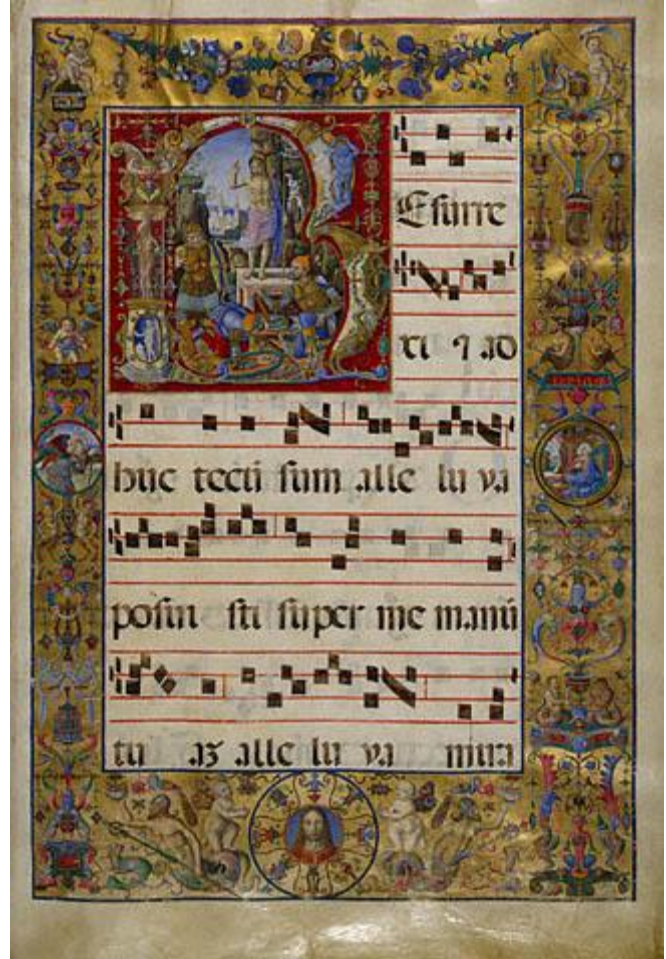 REsurre
xi ⁊ ad
huc tecū sum alle lu ya
posui sti super me manū
tu aʒ alle lu ya mira